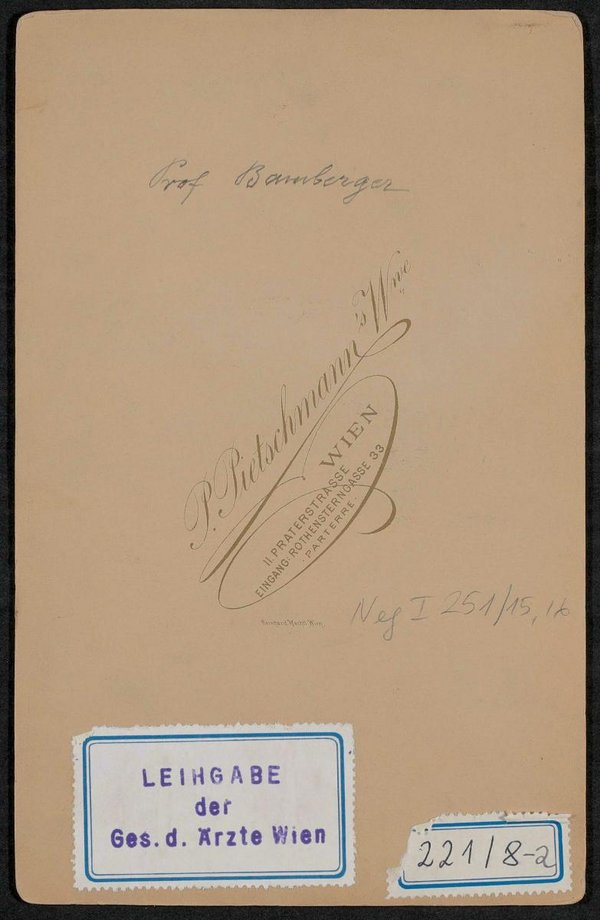 Prof Bamberger
P. Pietschmann's Wwe
WIEN
II. PRATERSTRASSE
EINGANG: ROTHENSTERNGASSE 33
PARTERRE.
Bernhard Wachtl Wien.
Neg I 251/15, 16
LEIHGABE
der
Ges. d. Ärzte Wien
221/8-a